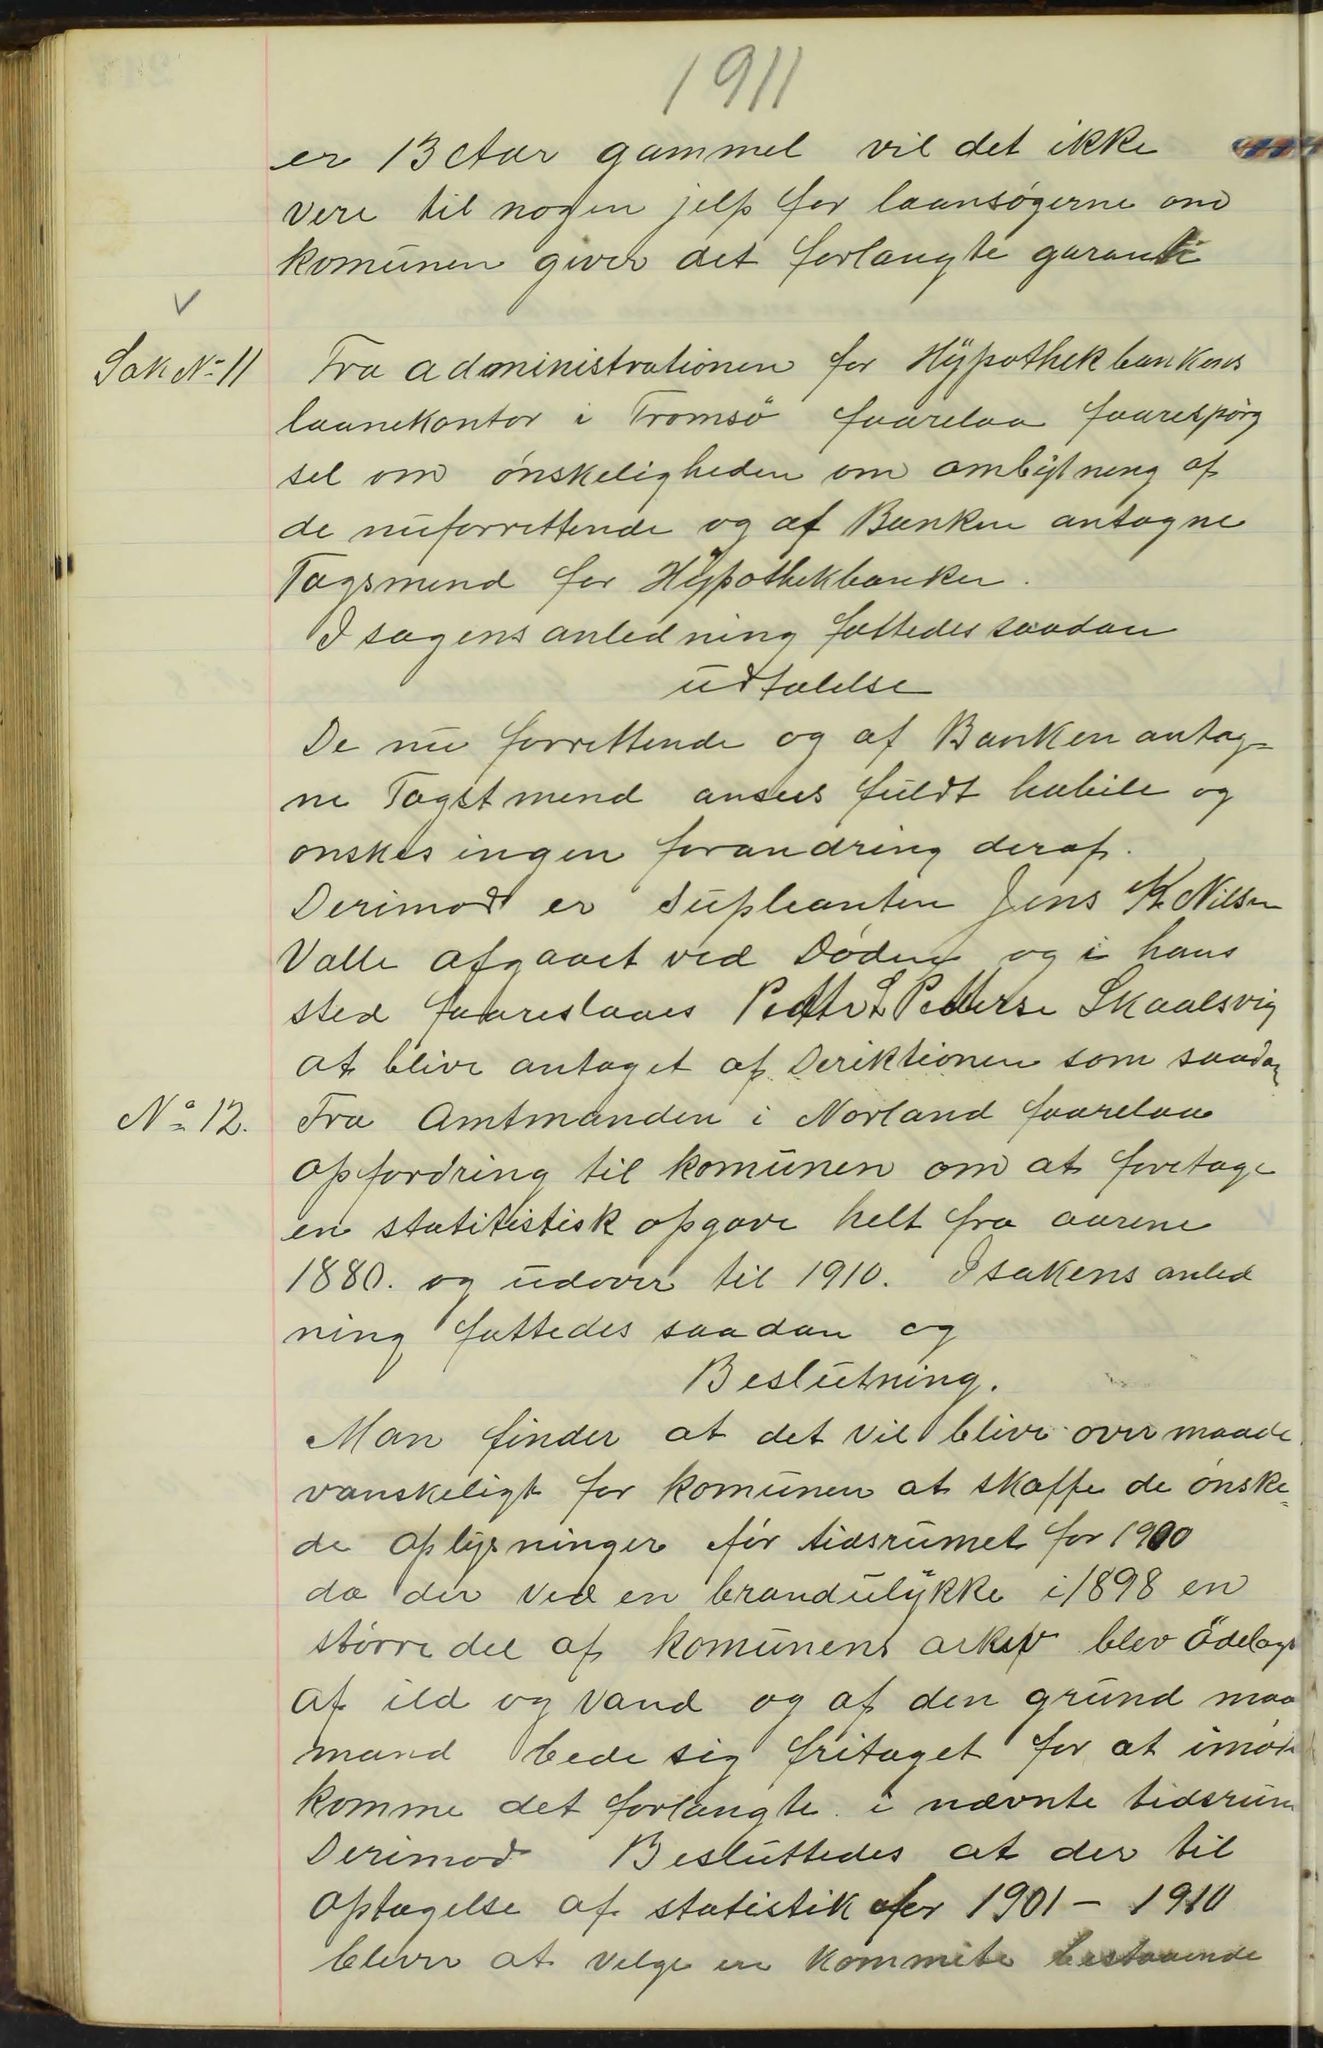 1911
er 13 Aar gammel vil det ikke
vere til nogen jelp for laansøgerne om
komunen giver det forlangte garanti
Sak No 11 Fra administrationen for Hypothekbankens
laanekontor i Tromsö faarelaa faarespørg
sel om ønskeligheden om ombytning af
de nuforrettende og af Banken antagne
Tagsmend for Hypothekbanken.
I sagens anledning fattedes saadan
udtalelse
De nu forrettende og af Banken antag=
ne Tagstmend ansees fuldt habile og
onskes ingen forandring deraf.
Derimod er Supleanten Jens K. Nilsen
Valle afgaaet ved Døden og i hans
sted faareslaaes Petter L Petterse Skaalsvig
at blive antaget af Deriktionen som saadan
No 12. Fra Amtmanden i Norland faarelaa
opfordring til komunen om at foretage
en statitistisk opgave helt fra aarene
1880. og udover til 1910. I sakens anled
ning fattedes saadan og
Beslutning.
Man finder at det vil blive overmaade
vanskeligt for komunen at skaffe de ønske=
de oplysninger for tidsrumet før 1900
da der ved en brandulykke i 1898 en
større del af komunens arkiv blev ödelagt
af ild og vand og af den grund maa
mand bede sig fritaget for at imøde
komme det forlangte i nævnte tidsrum
Derimod Besluttedes at der til
optagelse af statistik for 1901 - 1910
bliver at velge en kommite bestaaende